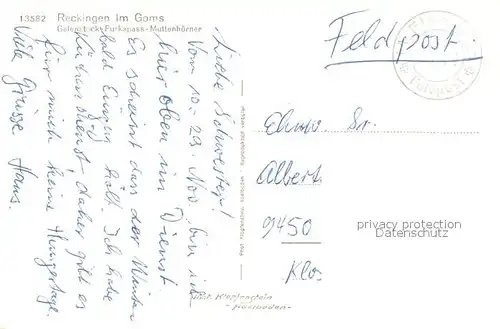 13582 Reckingen im Goms
Galenstock-Furkapass-Muttenhörner
Liebe Schwester!
Vom 10.-23. Nov. bin ich
hier oben im Dienst.
Es scheint dass der Winter
bald Einzug hält. Ich habe
Küchendienst, daher gibt es
für mich keine Hungertage.
Viele Grüsse Hans.
Feldpost.
Feldpost
Ehrw. Sr.
Albert
9450
Klos
privacy protection
Datenschutz